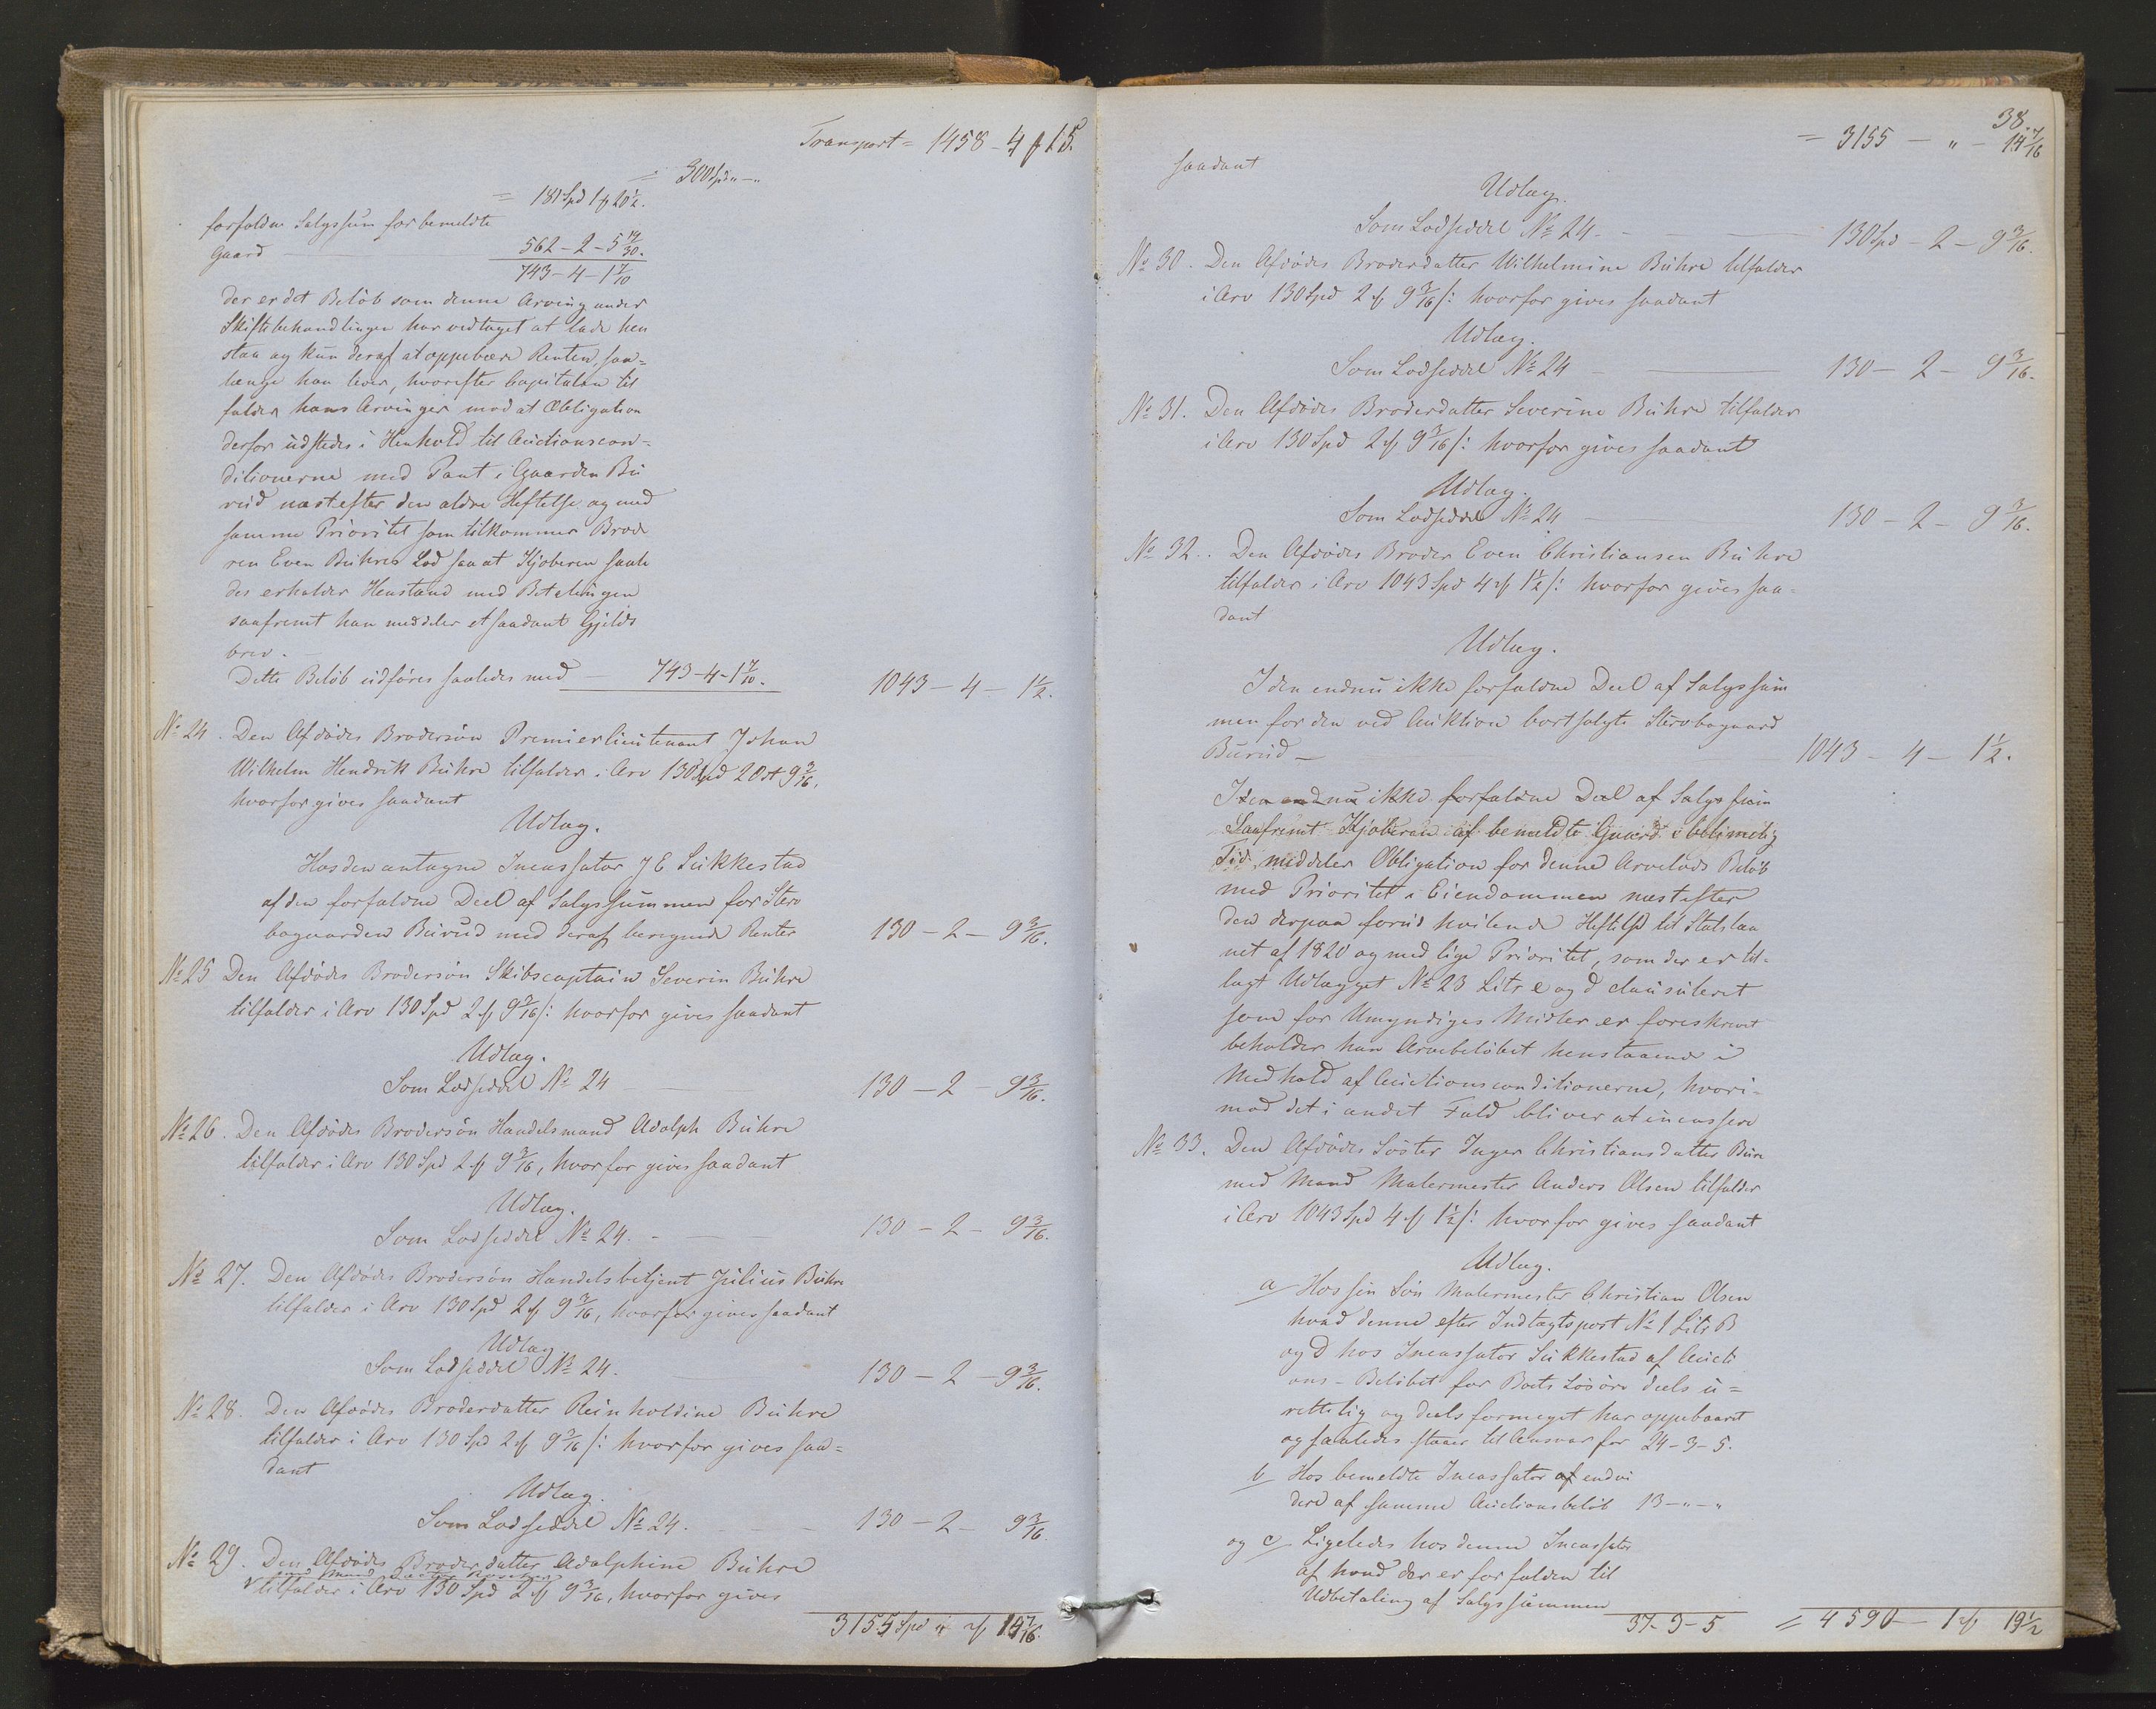 Transport = 1458 - 4 ƒ 15.
= 300 Spd " - "
= 181 Spd 1 ƒ 20 1/2.
forfaldne Salgssum for bemeldte
Gaard — 562 - 2 - 5 19/30.
743 - 4 - 1 7/10
der er det Beløb som denne Arving under
Skiftebehandlingen har vedtaget at lade hen
staa og kun deraf at oppebære Renten, saa=
længe han lever, hvorefter Capitalen til
falder hans Arvinger mod at Obligation
derfor udstedes i Henhold til Auctionscon=
ditionerne med Pant i Gaarden Bu
rud næstefter den ældre Heftelse og med
samme Prioritet som tilkommer Brode
ren Even Buhres Lod saa at Kjøberen saale
des erholder Henstand med Betalingen
saafremt han meddeler et saadant Gjelds
brev. —
Dette Beløb udføres saaledes med — 743 - 4 - 1 7/10. 1043 - 4 - 1 1/2.
No 24. Den Afdødes Brodersøn Premierlieutenant Johan
Wilhelm Hendrik Buhre tilfalder i Arv 130 Spd 2 Ort 9 3/16,
hvorfor gives saadant
Udlæg.
Hos den antagne Incassator J E Sukkestad
af den forfaldne Deel af Salgssummen for Stervo
bogaarden Burud med deraf beregnede Renter 130 - 2 - 9 3/16.
No 25 Den Afdødes Brodersøn Skibscaptain Severin Buhre
tilfalder i Arv 130 Spd 2 ƒ 9 3/16 ƒ: hvorfor gives saadant
Udlæg.
Som Lodseddel No 24 — 130 - 2 - 9 3/16.
No 26. Den Afdødes Brodersøn Handelsmand Adolph Buhre
tilfalder i Arv 130 Spd 2 ƒ 9 3/16, hvorfor gives saadant
Udlæg.
Som Lodseddel No 24. - — 130 - 2 - 9 3/16.
No 27. Den Afdødes Brodersøn Handelsbetjent Julius Buhre
tilfalder i Arv 130 Spd 2 ƒ 9 3/16, hvorfor gives saadant
Udlæg.
Som Lodseddel No 24. 130 - 2 - 9 3/16.
No 28. Den Afdødes Broderdatter Reinholdine Buhre
tilfalder i Arv 130 Spd 2 ƒ 9 3/16 ƒ: hvorfor gives saa=
dant
Udlæg.
Som Lodseddel No 24. - - - 130 - 2 - 9 3/16.
No 29. Den Afdødes Broderdatter Adolphine Buhre
med Mand
tilfalder i Arv 130 Spd 2 ƒ 9 3/16, hvorfor gives
3155 Spd " ƒ 14 7/16.
38.
= 3155 — " - 14 7/16
saadant
Udlæg.
Som Lodseddel No 24. - — 130 Spd - 2 - 9 3/16.
No 30. Den Afdødes Broderdatter Wilhelmine Buhre tilfalder
i Arv 130 Spd 2 ƒ 9 3/16 ƒ: hvorfor gives saadant
Udlæg.
Som Lodseddel No 24 - — 130 - 2 - 9 3/16.
No 31. Den Afdødes Broderdatter Severine Buhre tilfalder
i Arv 130 Spd 2 ƒ 9 3/16 ƒ: hvorfor gives saadant
Udlæg.
Som Lodseddel No 24 — 130 - 2 - 9 3/16.
No 32. Den Afdødes Broder Even Christiansen Buhre
tilfalder i Arv 1043 Spd 4 ƒ 1 1/2 ƒ: hvorfor gives saa=
dant
Udlæg.
I den endnu ikke forfaldne Deel af Salgssum
men for den ved Auktion bortsolgte Stervbogaard
Burud — 1043 - 4 - 1 1/2.
I den endnu ikke forfaldne Deel af Salgssum
Saafremt Kjøberen af bemeldte Gaard i betimelig
Tid meddeler Obligation for denne Arvelods Beløb
med Prioritet i Eiendommen næstefter
den derpaa forud hvilende Heftelse til Statslaa
net af 1820 og med lige Prioritet, som der er til=
lagt Udlægget No 23 Litr e og d clausuleret
som for Umyndiges Midler er foreskrevet
beholder han Arvebeløbet henstaaende i
Medhold af Auctionsconditionerne, hvori=
mod det i andet Fald bliver at incassere
No 33. Den Afdødes Søster Inger Christiansdatter Bure
med Mand Malermester Anders Olsen tilfalder
i Arv 1043 Spd 4 ƒ 1 1/2 ƒ: hvorfor gives saadant
Udlæg.
a/ Hos sin Søn Malermester Christian Olsen
hvad denne efter Indtægtspost No 1 Litr B
og D hos Incassator Sukkestad af Aucti
ons-Beløbet for Boets Løsøre deels u=
rettelig og deels formeget har oppebaaret
og saaledes staaer til Ansvar for 24 - 3 - 5.
b/ Hos bemeldte Incassator af endvi
dere af samme Auctionsbeløb 13 - " - "
og c/ Ligeledes hos denne Incassator
af hvad der er forfalden til
Udbetaling af Salgssummen
37 - 3 - 5 = 4590 - 1 ƒ 19 1/2